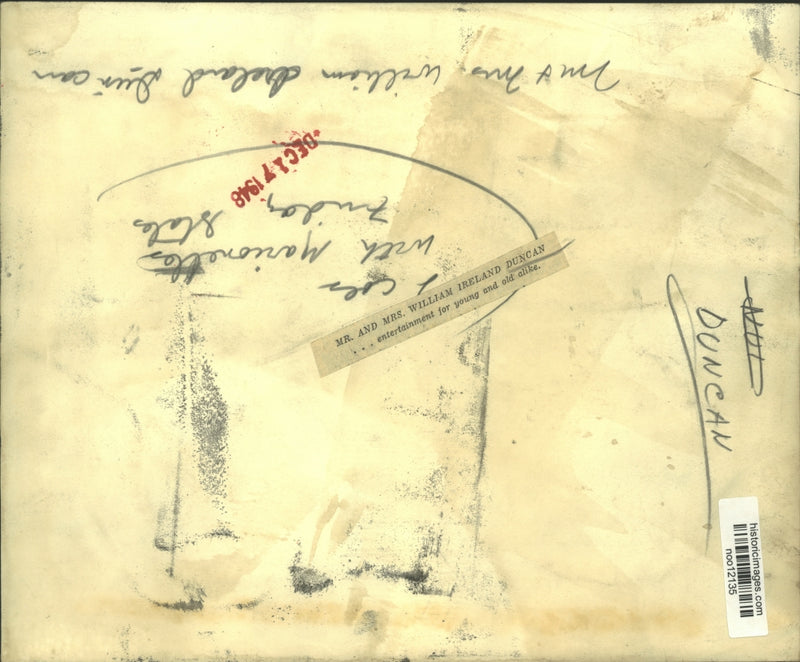 Mr & Mrs. William Ireland Duncan
DEC 17 1948
Friday
with Marionettes
MR. AND MRS. WILLIAM IRELAND DUNCAN
. . . entertainment for young and old alike.
DUNCAN
historicimages.com
noo12135